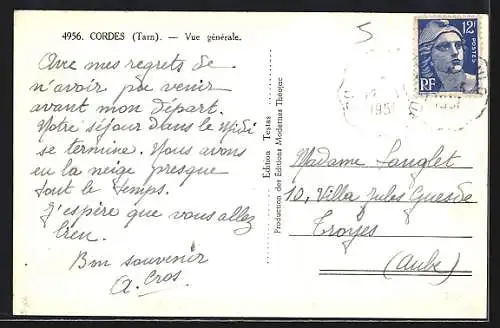 4956. CORDES (Tarn). — Vue générale.
Avec mes regrets de
n'avoir pu venir
avant mon départ.
Notre séjour dans le Midi
se termine. Nous avons
eu la neige presque
tout le temps.
J'espère que vous allez
bien.
Bon souvenir
A. Cros.
Edition Testas
Production des Editions Modernes Théojac
5
12F
POSTES
RF
1951
1951
Madame Langlet
10, Villa Jules Guesde
Troyes
(Aube)